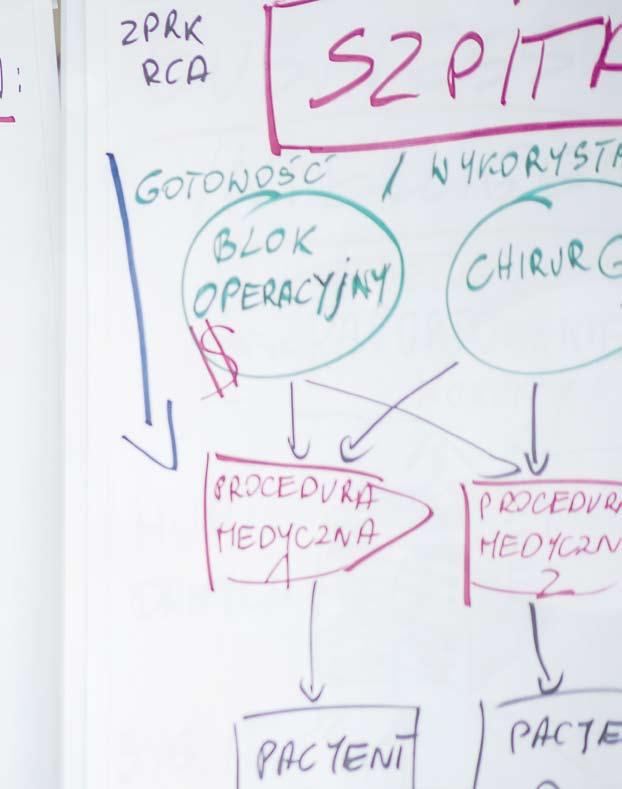 ZPRK
RCA
SZPITA
GOTOWOŚĆ / WYKORYSTA
BLOK
OPERACYJNY
CHIRURG
$
PROCEDURA
MEDYCZNA
1
PROCEDURA
MEDYCZN
2
PACYENT
PACYE